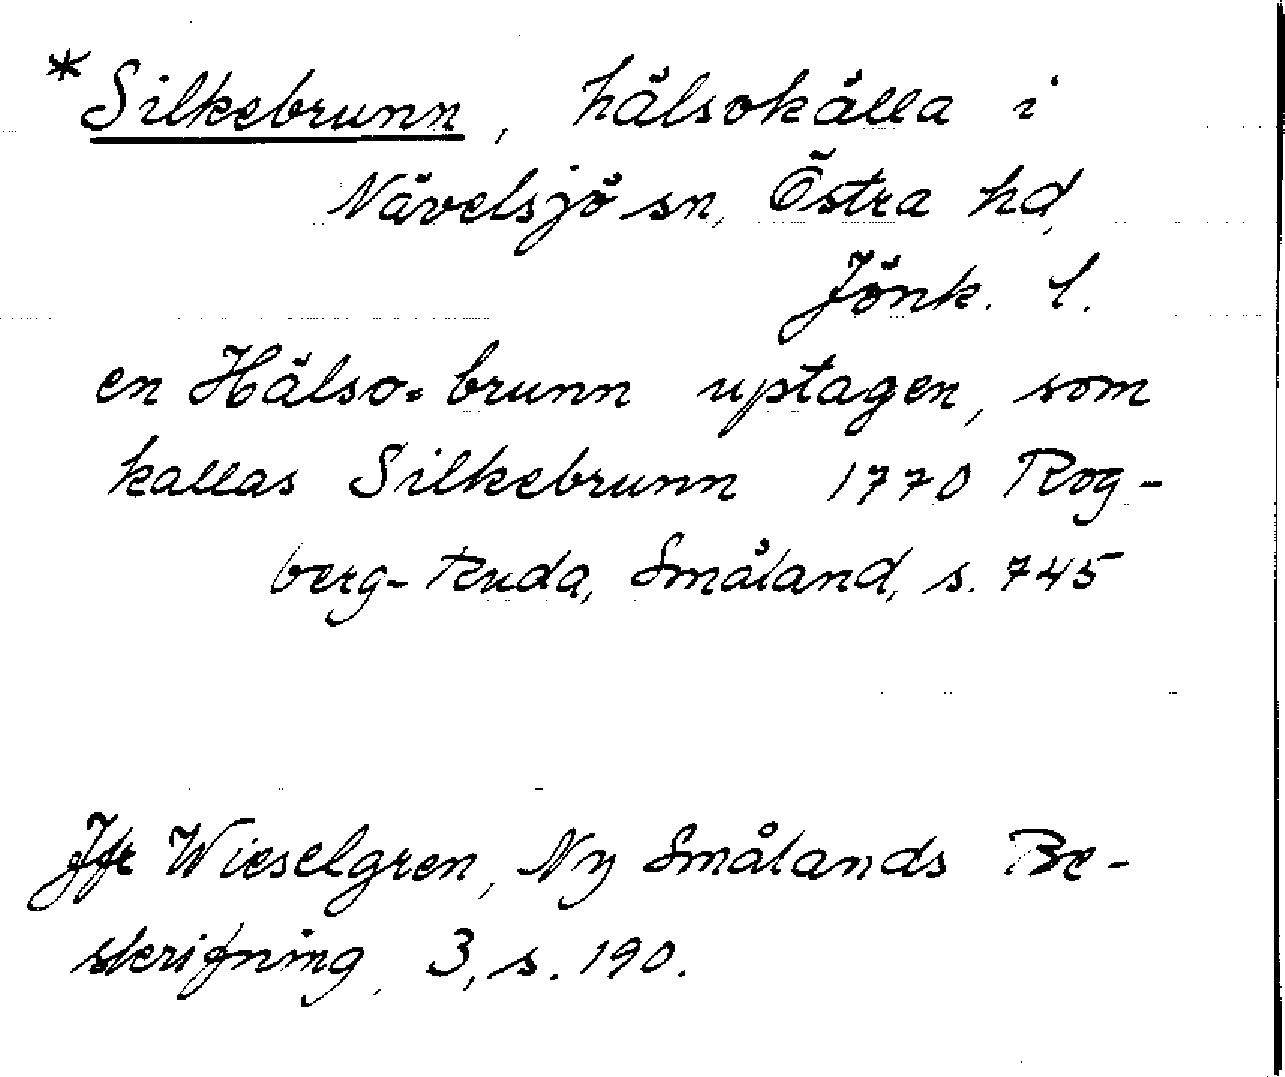 *Silkebrunn, hälsokälla i
Nävelsjö sn, Östra hd,
Jönk. l.
en Hälso=brunn uptagen, som
kallas Silkebrunn 1770 Rog-
berg-Ruda, Småland, s. 745
Jfr Wieselgren, Ny Smålands Be-
skrifning, 3, s. 190.